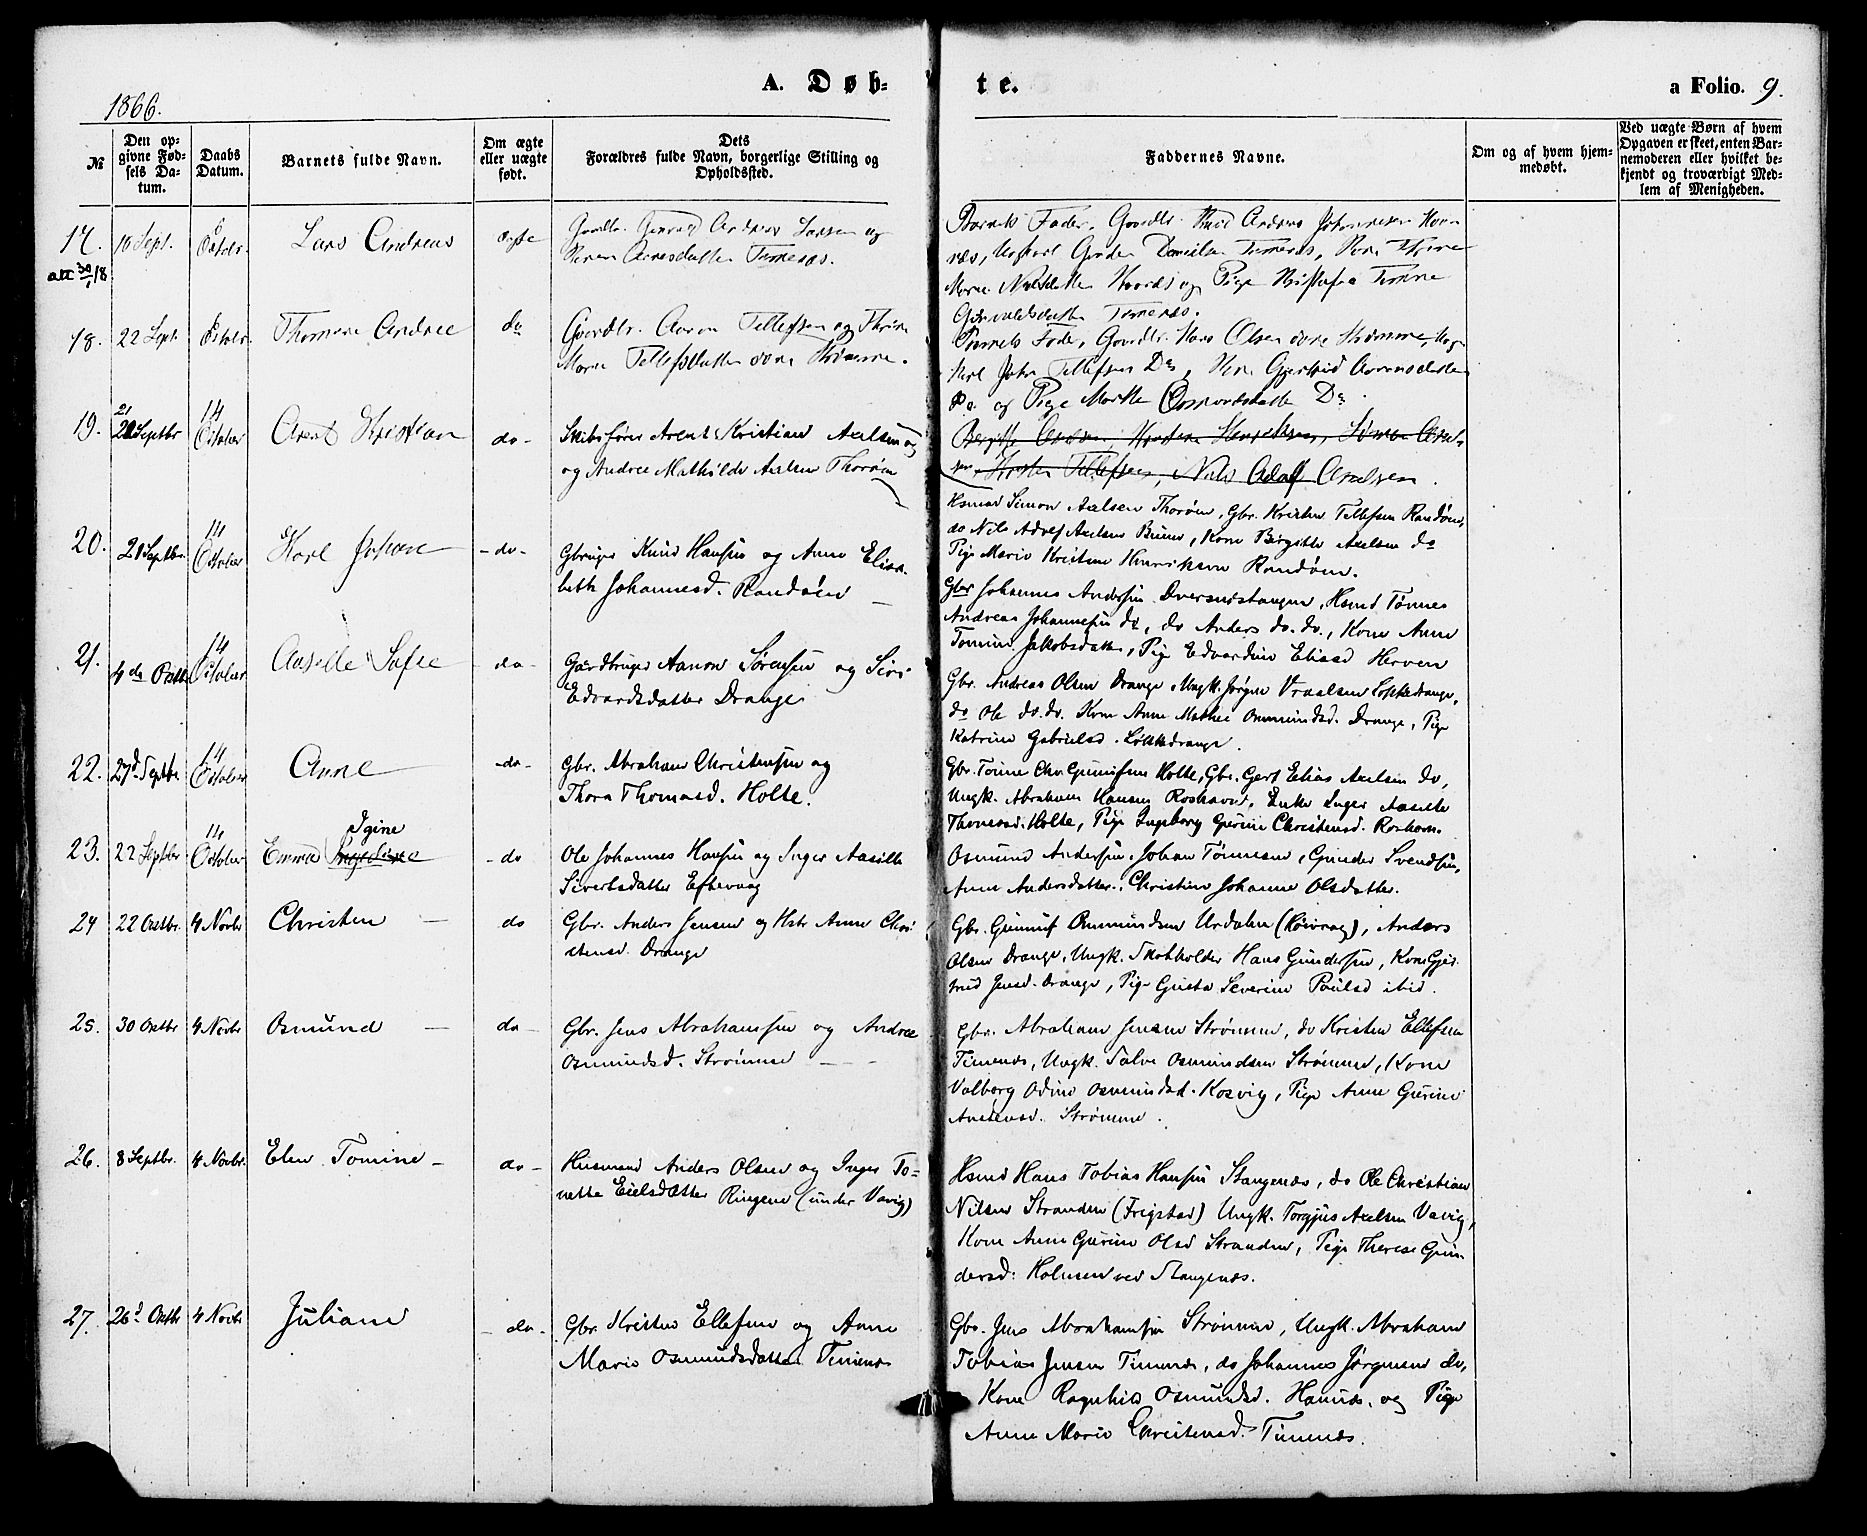 1866.
A. Døb-
te.
a Folio. 9.
№
Den op-
givne Fød-
sels Da-
tum.
Daabs
Datum.
Barnets fulde Navn.
Om ægte
eller uægte
født.
Dets
Forældres fulde Navn, borgerlige Stilling og
Opholdssted.
Faddernes Navne.
Om og af hvem hjem-
medøbt.
Ved uægte Børn af hvem
Opgaven er skeet, enten Bar-
nemoderen eller hvilket be-
kjendt og troværdigt Med-
lem af Menigheden.
17.
Lars Andreas
ægte
Andreas Larsen og
Barnets Fader, Gaardbr. Knud Andreas Johannesen
18.
22 Sept.
Thomine Andrea
do
Gaardbr. Aaron Tellefsen og Thrine
Marie Tellefsdatter
Barnets Fader, Gaardbr. Hans Olsen
John Tellefsen Do,
og Pige Marthe Osmundsdatter Do.
19.
21 Septbr
14
October
Arent Kristian
do -
Skibsfører Arent Kristian Axelsen og
og Andrea Mathilde Axelsen Thorøen
Nils Adolf Axelsen.
Hsmd Simon Axelsen Thorøen, Gbr. Kristen Tellefsen Randøen,
do Nils Adolf Axelsen, Kone Birgitte Axelsen do
Pige Marie Kristine Henriksen Randøen.
20.
21 Septbr.
14
October
Karl Johan
- do -
Gbruger Knud Hansen og Anne Elisa-
beth Johannesd. Randøen
Gbr Johannes Andersen Dversnestangen, Hsmd Tønnes
Andreas Johannesen do, do Anders do. do., Kone Anne
Tomine Jakobsdatter, Pige Edvardine Eliasd Herven
21.
4de Octbr
14
October
Aaselle Sofie
do -
Gaardbruger Aanon Sørensen og Siri
Edvardsdatter Drange
Gbr. Andreas Olsen Drange, Ungk. Jørgen Vraalsen Løkkedrange,
do Ole do. do. Kone Anne Mathea Osmundsd. Drange, Pige
Katrine Gabrielsd. Løkkedrange.
22.
27d. Septbr.
14
October
Anne
- do -
Gbr. Abraham Christensen og
Thora Thomasd. Holte.
Gbr. Tønnes Chr. Gunnufsen Holte, Gbr. Gert Elias Axelsen do,
Ungk. Abraham Hansen Roshavn, Enke Inger Aaselle
Thomasd. Holte, Pige Ingeborg Gurine Christensd. Roshavn.
23.
22 Septbr
14
October
Igine
Emma
- do
Ole Johannes Hansen og Inger Aaselle
Sivertsdatter Eftevaag
Osmund Andersen, Johan Tønnesen, Gunder Svendsen,
Anne Andersdatter, Christine Johanne Olsdatter.
24
22 Octbr.
4 Novbr
Christen
do
Gbr. Anders Jensen og Hstr Anne Chri-
stensd. Drange
Gbr. Gunnuf Osmundsen Urdalen (Køivaag), Anders
Olsen Drange, Ungk. Skoleholder Hans Gundersen, Kone Gjer-
trud Jensd. Drange, Pige Gusta Severine Poulsd ibid.
25.
30 Octbr
4 Novbr
Osmund
do -
Gbr. Jens Abrahamsen og Andrea
Osmundsd. Strømme
Gbr. Abraham Jensen Strømme, do Kristen Ellefsen
Timenes, Ungk. Salve Osmundsen Strømme, Kone
Valborg Odine Osmundsd. Kosvig, Pige Anne Gurine
Strømme.
26.
8 Septbr.
4 Novbr.
Elen Tomine -
do -
Husmand Anders Olsen og Inger To-
nette Eielsdatter Ringene (under Vavig)
Hsmd Hans Tobias Hansen Stangenes, do Ole Christian
Nilsen Stranden (Frigstad) Ungk. Torgjus Axelsen Vavig,
Kone Anne Gurine Olsd Stranden, Pige Therese Gun-
dersd. Holmen ved Stangenes.
27.
26d Octbr
4 Novbr
Juliane
- do -
Gbr. Kristen Ellefsen og Anne
Marie Osmundsdatter Timenes
Gbr. Jens Abrahamsen Strømme, Ungk. Abraham
Tobias Jensen Timenes, do Johannes Jørgensen do,
Kone Ragnhild Osmundsd. Hamre, og Pige
Anne Marie Christensd. Timenes.